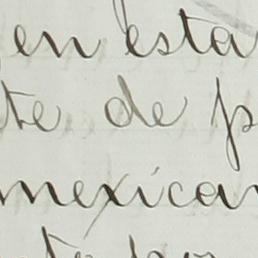 en esta
te de p
mexican